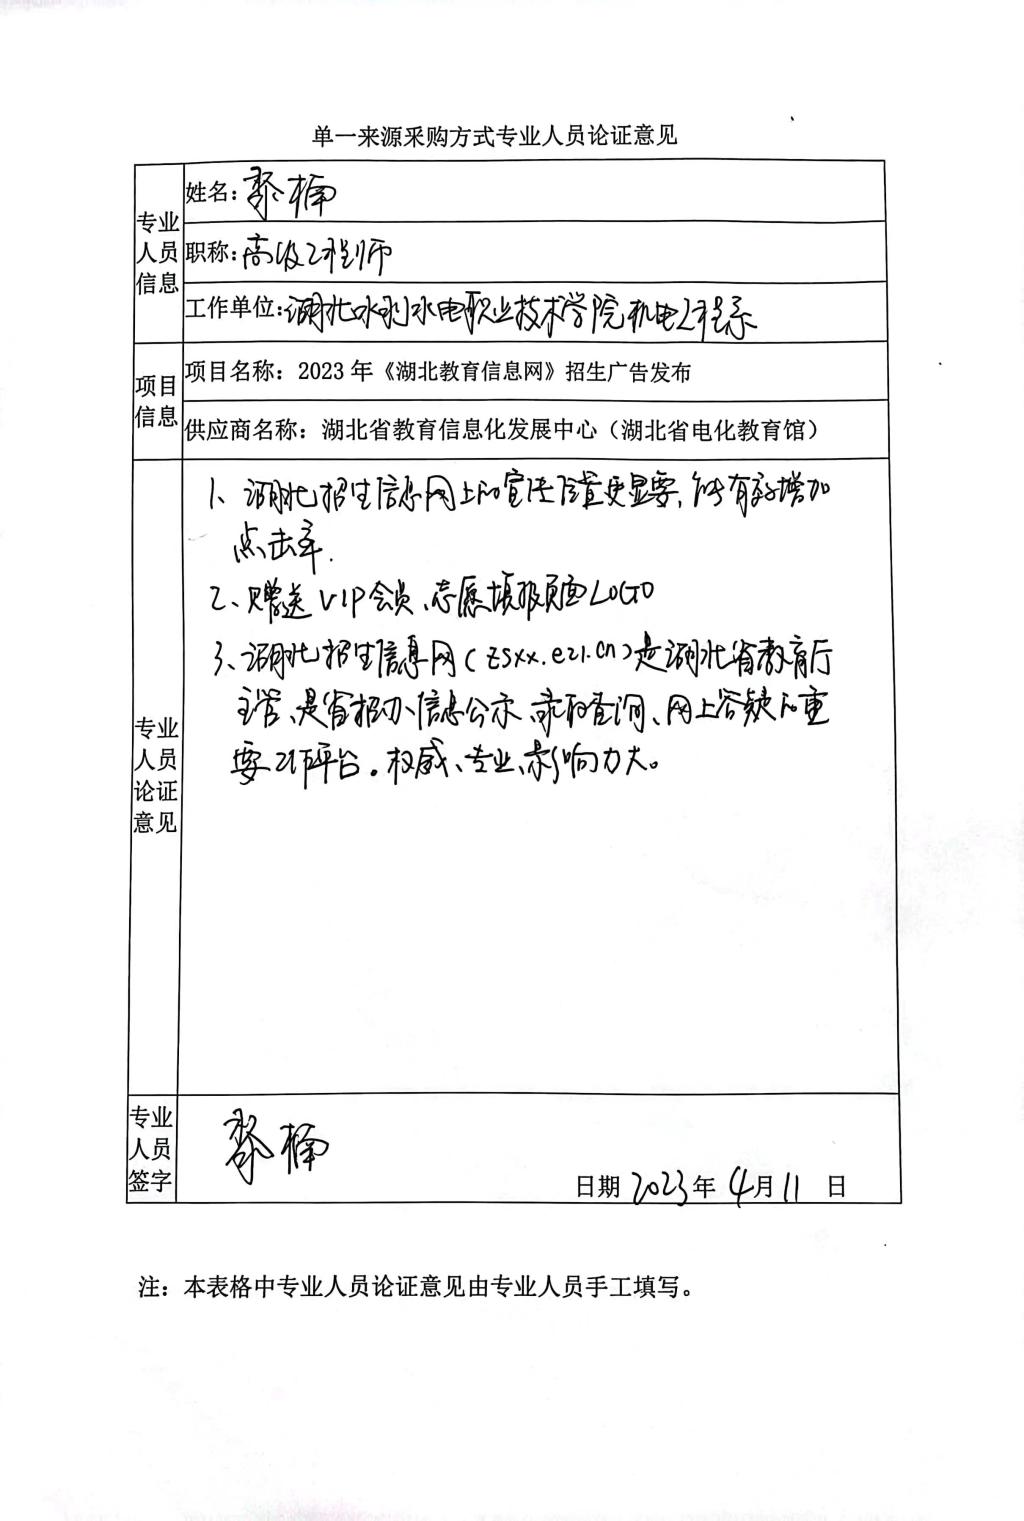 单一来源采购方式专业人员论证意见
专业人员信息
姓名：黎楠
职称：高级工程师
工作单位：湖北水利水电职业技术学院机电工程系
项目信息
项目名称：2023年《湖北教育信息网》招生广告发布
供应商名称：湖北省教育信息化发展中心（湖北省电化教育馆）
专业人员论证意见
1、湖北招生信息网上的宣传位置更显要，能有效增加
点击率.
2、赠送VIP会员、志愿填报页面LOGO
3、湖北招生信息网（zsxx.e21.cn）是湖北省教育厅
主管、是省招办信息公示、录取查询、网上答疑的重
要工作平台。权威、专业、影响力大。
专业人员签字
黎楠
日期 2023年 4月 11 日
注：本表格中专业人员论证意见由专业人员手工填写。